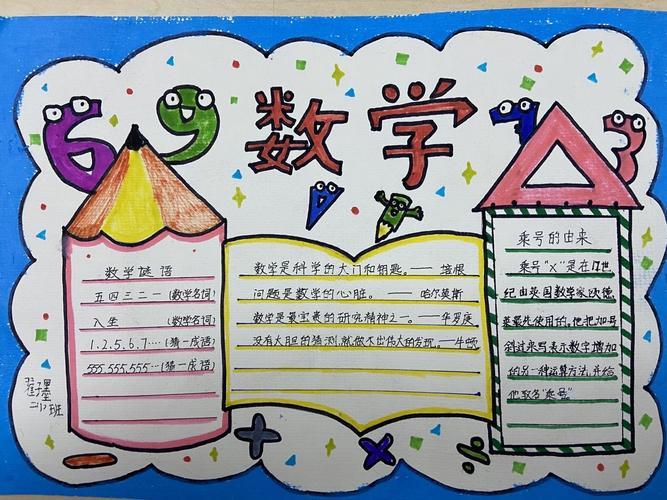 69 数学 7 3
数学谜语
五四三二一 (数学名词)
入生 (数学名词)
1.2.5.6.7…(猜一成语)
555,555,555…(猜一成语)
数学是科学的大门和钥匙。—— 培根
问题是数学的心脏。—— 哈尔莫斯
数学是最宝贵的研究精神之一。——华罗庚
没有大胆的猜测,就做不出伟大的发现。—牛顿
乘号的由来
乘号"X"是在17世
纪由英国数学家欧德
莱最先使用的。他把加号
斜过来写表示数字增加
的另一种运算方法,并给
他取名"乘号"
二(1)班